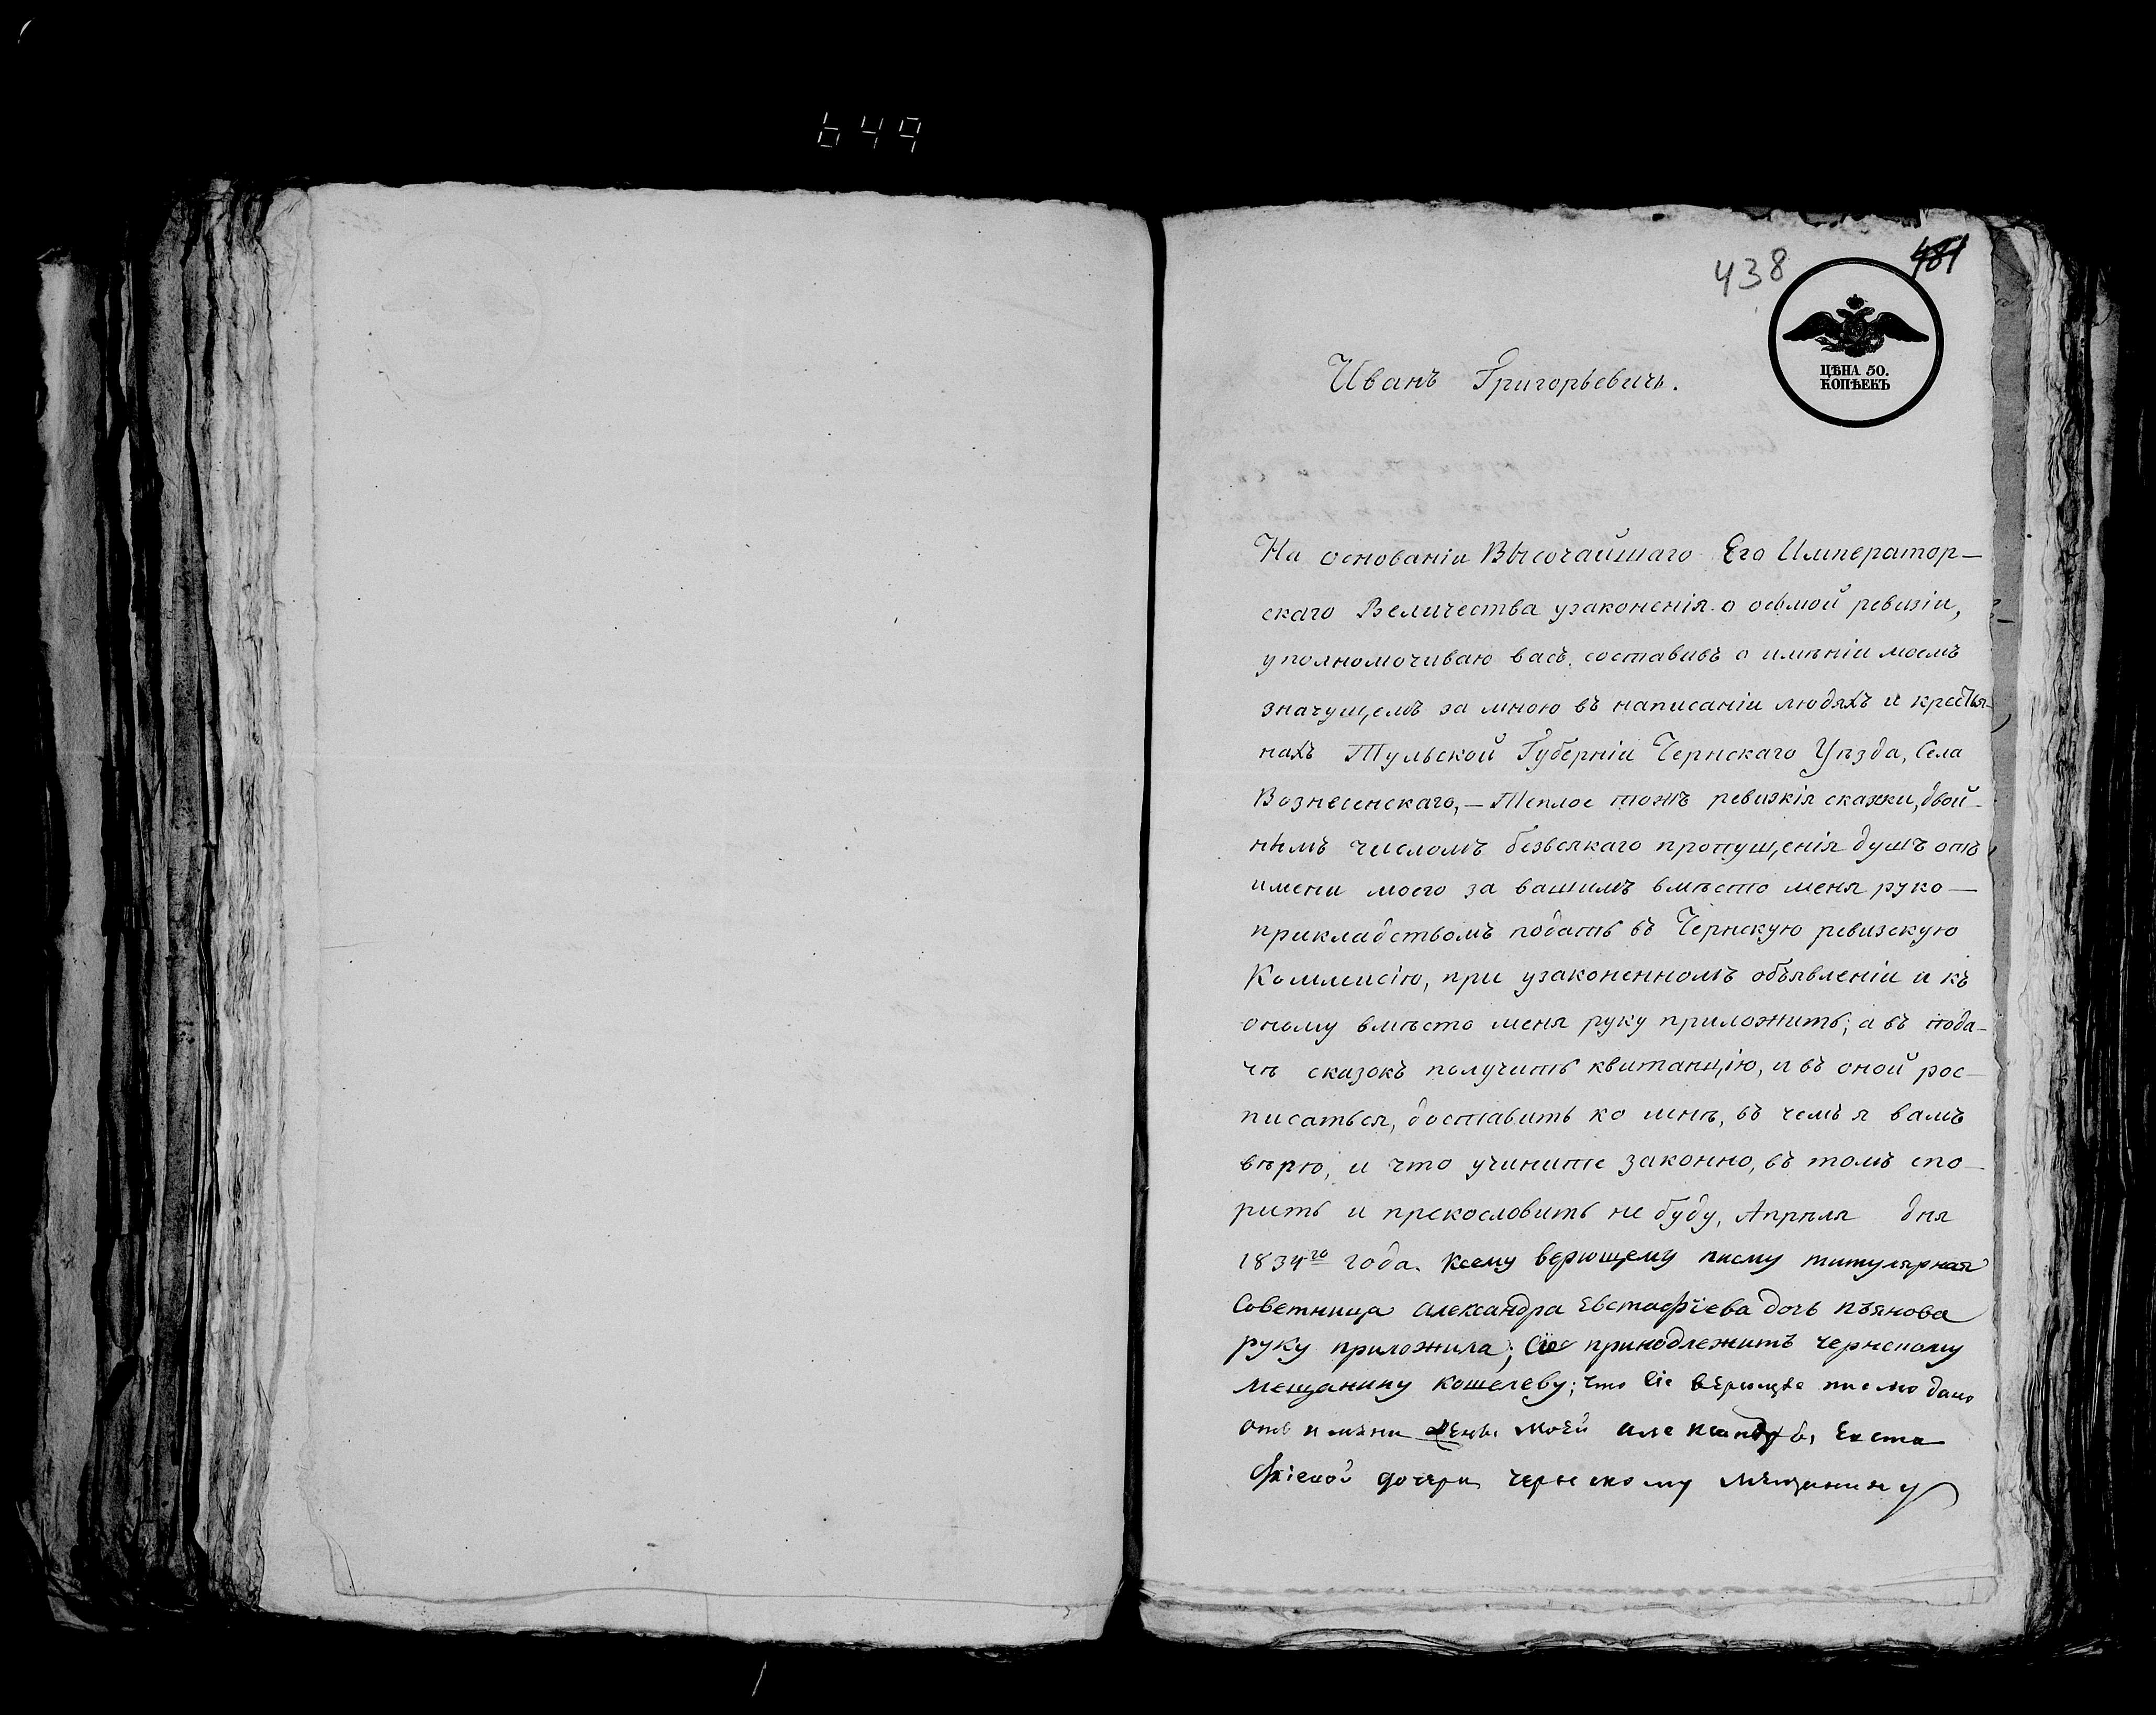 649
438
481
ЦѢНА 50.
КОПѢЕКЪ
Иванъ Григорьевичь.
На основаніи Высочайшаго Его Император-
скаго Величества узаконенія о осьмой ревизіи,
уполномочиваю васъ, составивъ о имѣніи моемъ
значущемъ за мною въ написаніи людяхъ и крестья-
нахъ Тульской Губерніи Чернскаго Уѣзда, Села
Вознесенскаго, - Теплое тожъ ревизкія скажки, двой-
нымъ числомъ безвсякаго пропущенія душъ отъ
имени моего за вашимъ вмѣсто меня руко-
прикладствомъ подать въ Чернскую ревизскую
Коммисію, при узаконенномъ объявленіи и къ
оному вмѣсто меня руку приложить; а въ пода-
чѣ сказокъ получить квитанцію, и въ оной рос-
писаться, доставить ко мнѣ, въ чемъ я вамъ
вѣрю, и что учините законно, въ томъ спо-
рить и прекословить не буду, Апрѣля дня
1834го года. Ксему верющему писму титулярная
Советница александра Евстафіева дочь пъянова
руку приложила; Сіе принодлежитъ чернскому
мещанину кошелеву; что сіе верющее писмо дано
отъ имени жены моей александры Евста
фіевой дочери чернскому мещанину